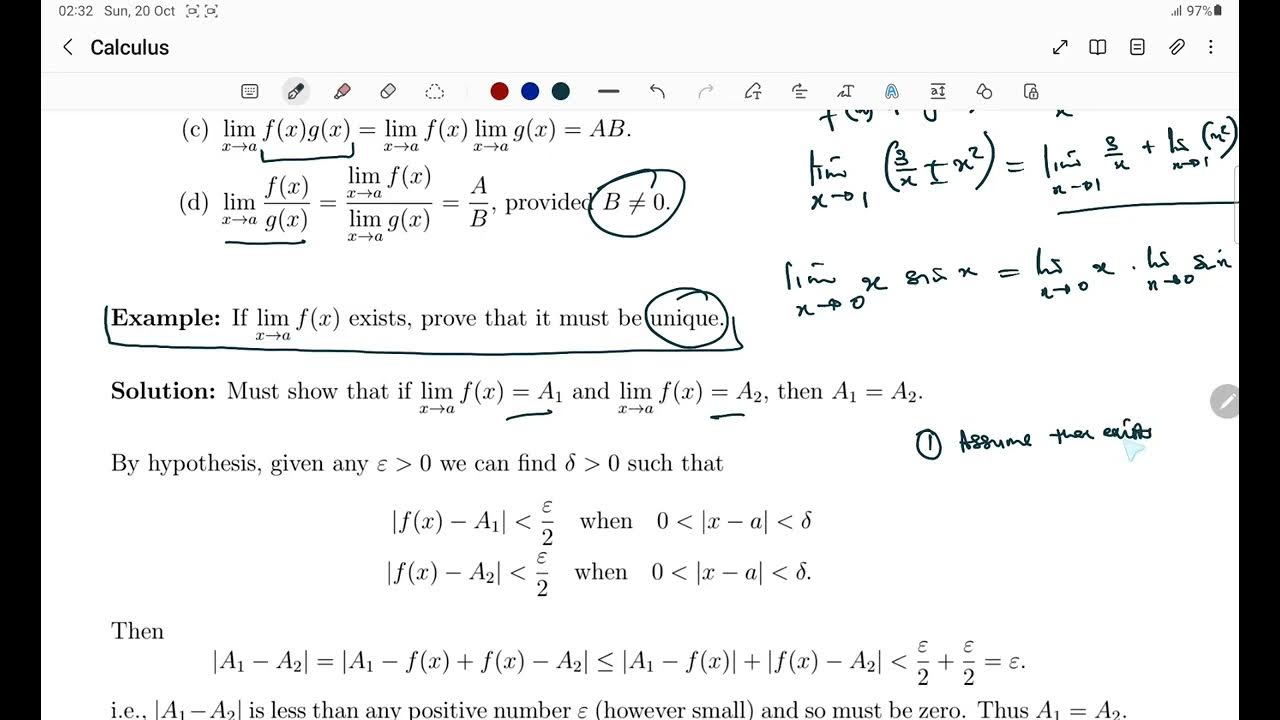 02:32 Sun, 20 Oct
97%
Calculus
(c) lim x→a f(x)g(x) = lim x→a f(x) lim x→a g(x) = AB.
lim x→1 (3/x ± x²) = lim x→1 3/x + lim x→1 (x²)
(d) lim x→a f(x)/g(x) = lim x→a f(x) / lim x→a g(x) = A/B, provided B ≠ 0.
lim x→0 x sin x = lim x→0 x · lim x→0 sin
Example: If lim x→a f(x) exists, prove that it must be unique.
Solution: Must show that if lim x→a f(x) = A₁ and lim x→a f(x) = A₂, then A₁ = A₂.
① Assume ther exists
By hypothesis, given any ε > 0 we can find δ > 0 such that
|f(x) − A₁| < ε/2 when 0 < |x − a| < δ
|f(x) − A₂| < ε/2 when 0 < |x − a| < δ.
Then
|A₁ − A₂| = |A₁ − f(x) + f(x) − A₂| ≤ |A₁ − f(x)| + |f(x) − A₂| < ε/2 + ε/2 = ε.
i.e., |A₁−A₂| is less than any positive number ε (however small) and so must be zero. Thus A₁ = A₂.